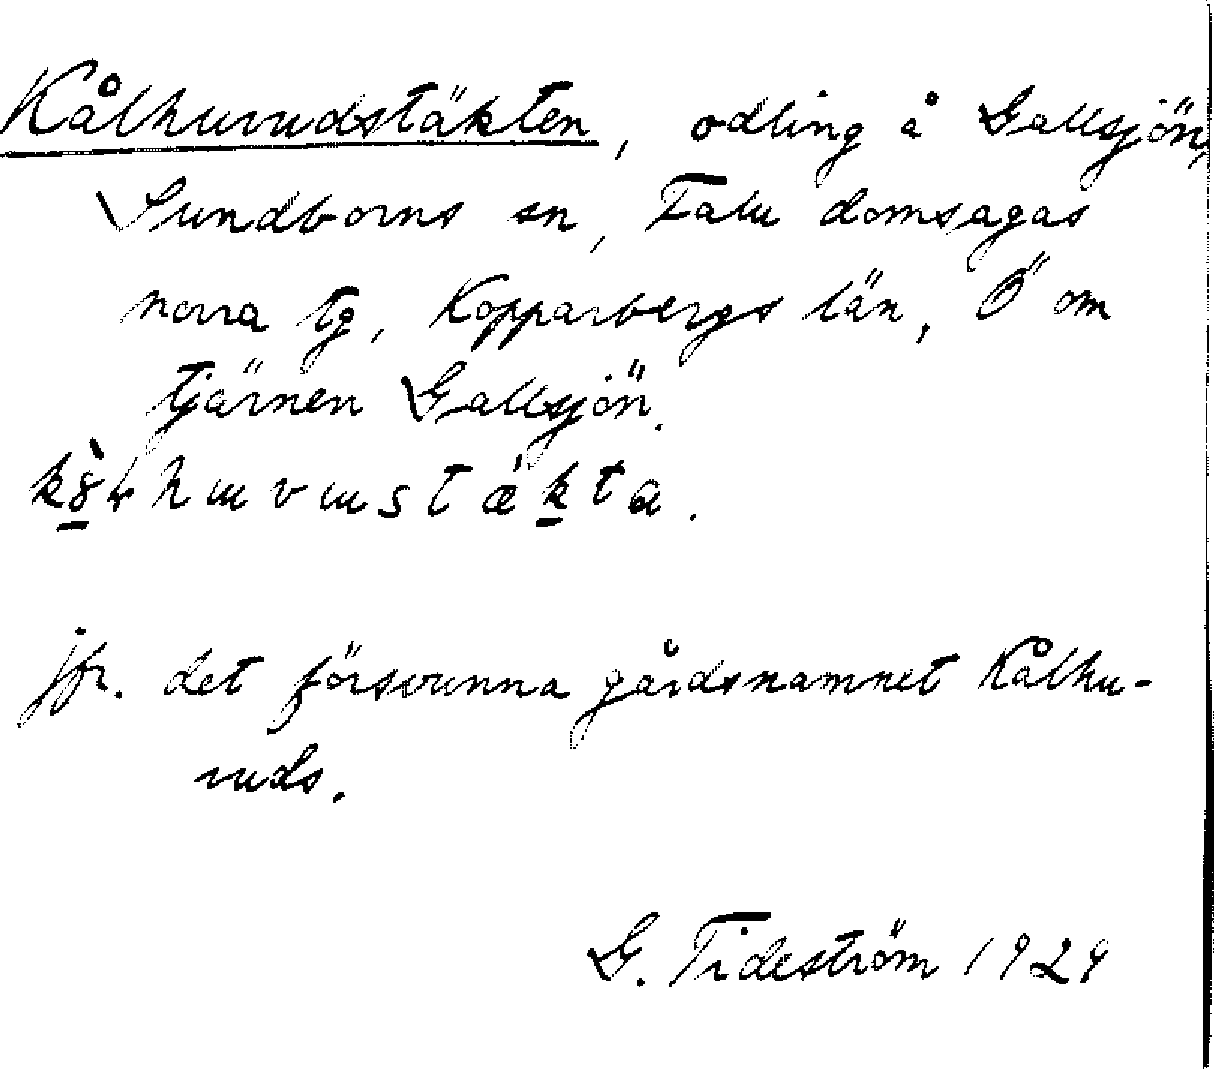 Kålhuvudstäkten, odling å Gallsjön,
Sundborns sn, Falu domsagas
norra tg, Kopparbergs län, Ö om
tjärnen Gallsjön.
jfr. det försvunna gårdsnamnet Kålhu-
vuds.
G. Tideström 1929